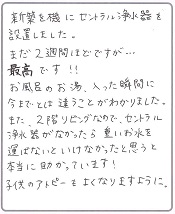 新築を機にセントラル浄水器を
設置しました。
まだ2週間ほどですが…
最高です!!
お風呂のお湯、入った瞬間に
今までとは違うことがわかりました。
また、2階リビングなので、セントラル
浄水器がなかったら重いお水を
運ばないといけなかったと思うと
本当に助かっています!
子供のアトピーもよくなりますように。